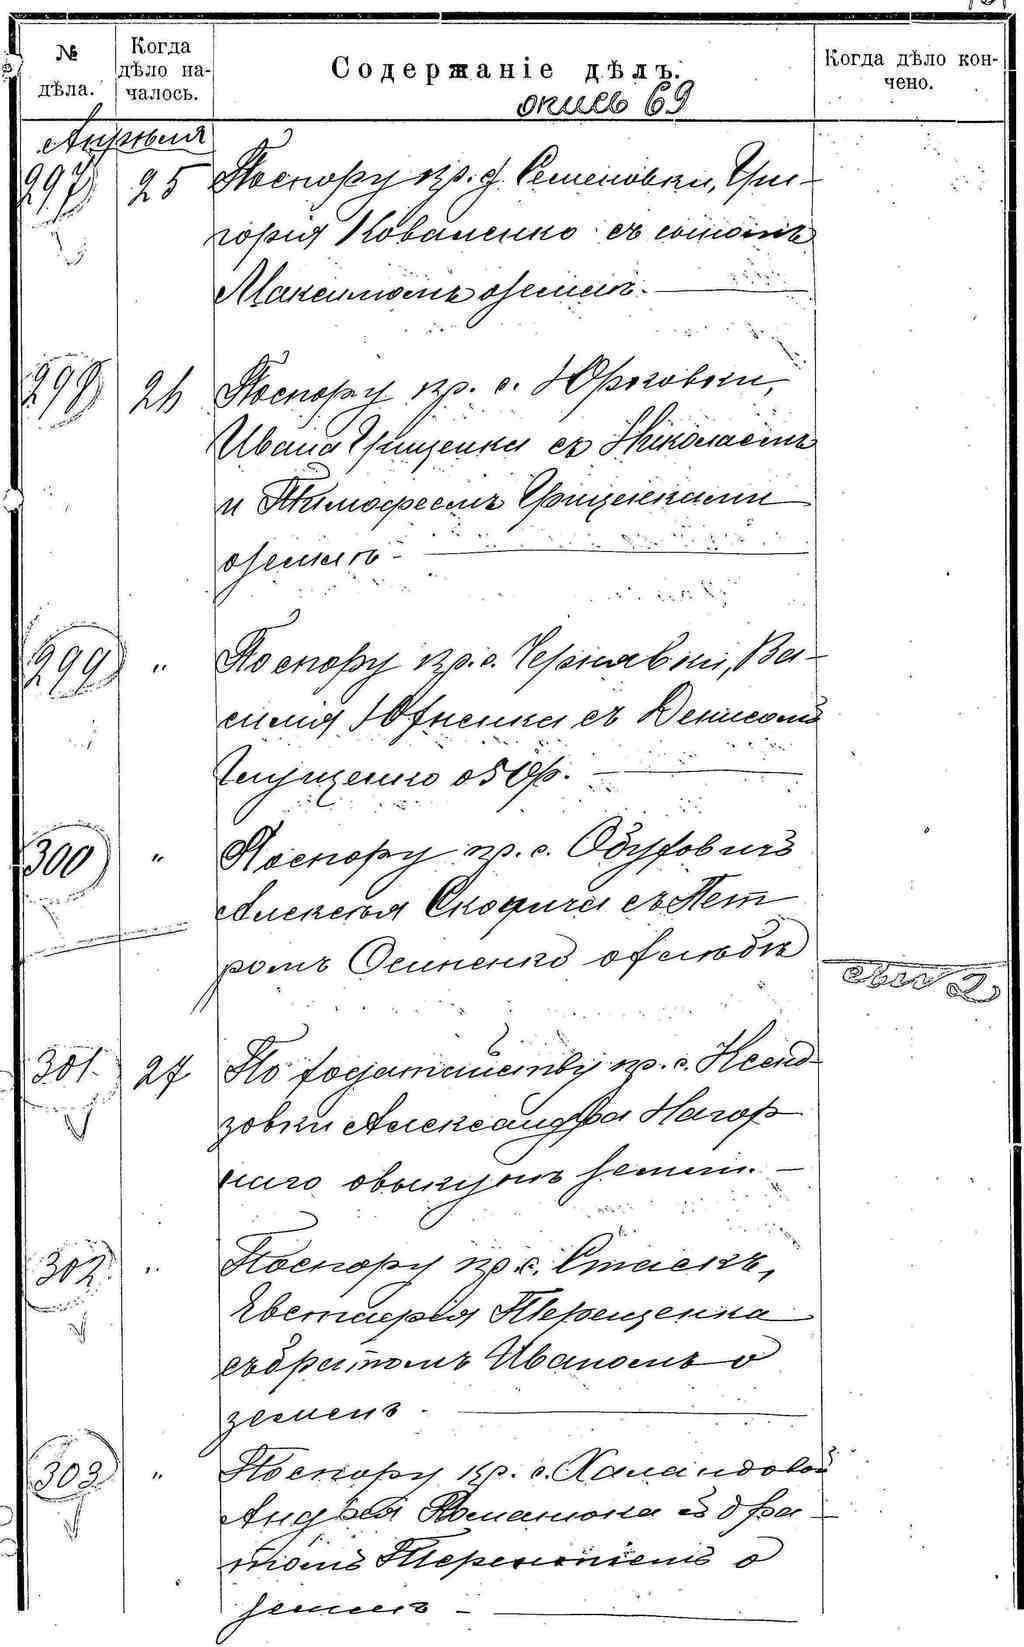 № дѣла.
Когда дѣло началось.
Содержаніе дѣлъ.
Когда дѣло кончено.
опись 69
Апрѣля
297 25 По спору кр. д. Семеновки, Гри-
горія Коваленко съ сыномъ
Максимомъ о землѣ.
298 26 По спору кр. с. Юрковки,
Ивана Грищенки съ Николаемъ
и Тимофеемъ Грищенками
о землѣ
299 " По спору кр. с. Чернявки, Ва-
силія съ Денисомъ
о 50 р.
300 " По спору кр. с. Обуховичъ
Алексѣя съ Пет
ромъ Осипенко о хлѣбѣ
301 27 По ходатайству кр. с. Ксенд-
зовки Александра Нагор
наго о выкупѣ земли.
302 " По спору кр. с.
Евстафія Терещенка
съ братомъ Иваномъ о
землѣ
303 " По спору кр. с.
Андрея Романюка съ бра-
томъ Терентіемъ о
землѣ